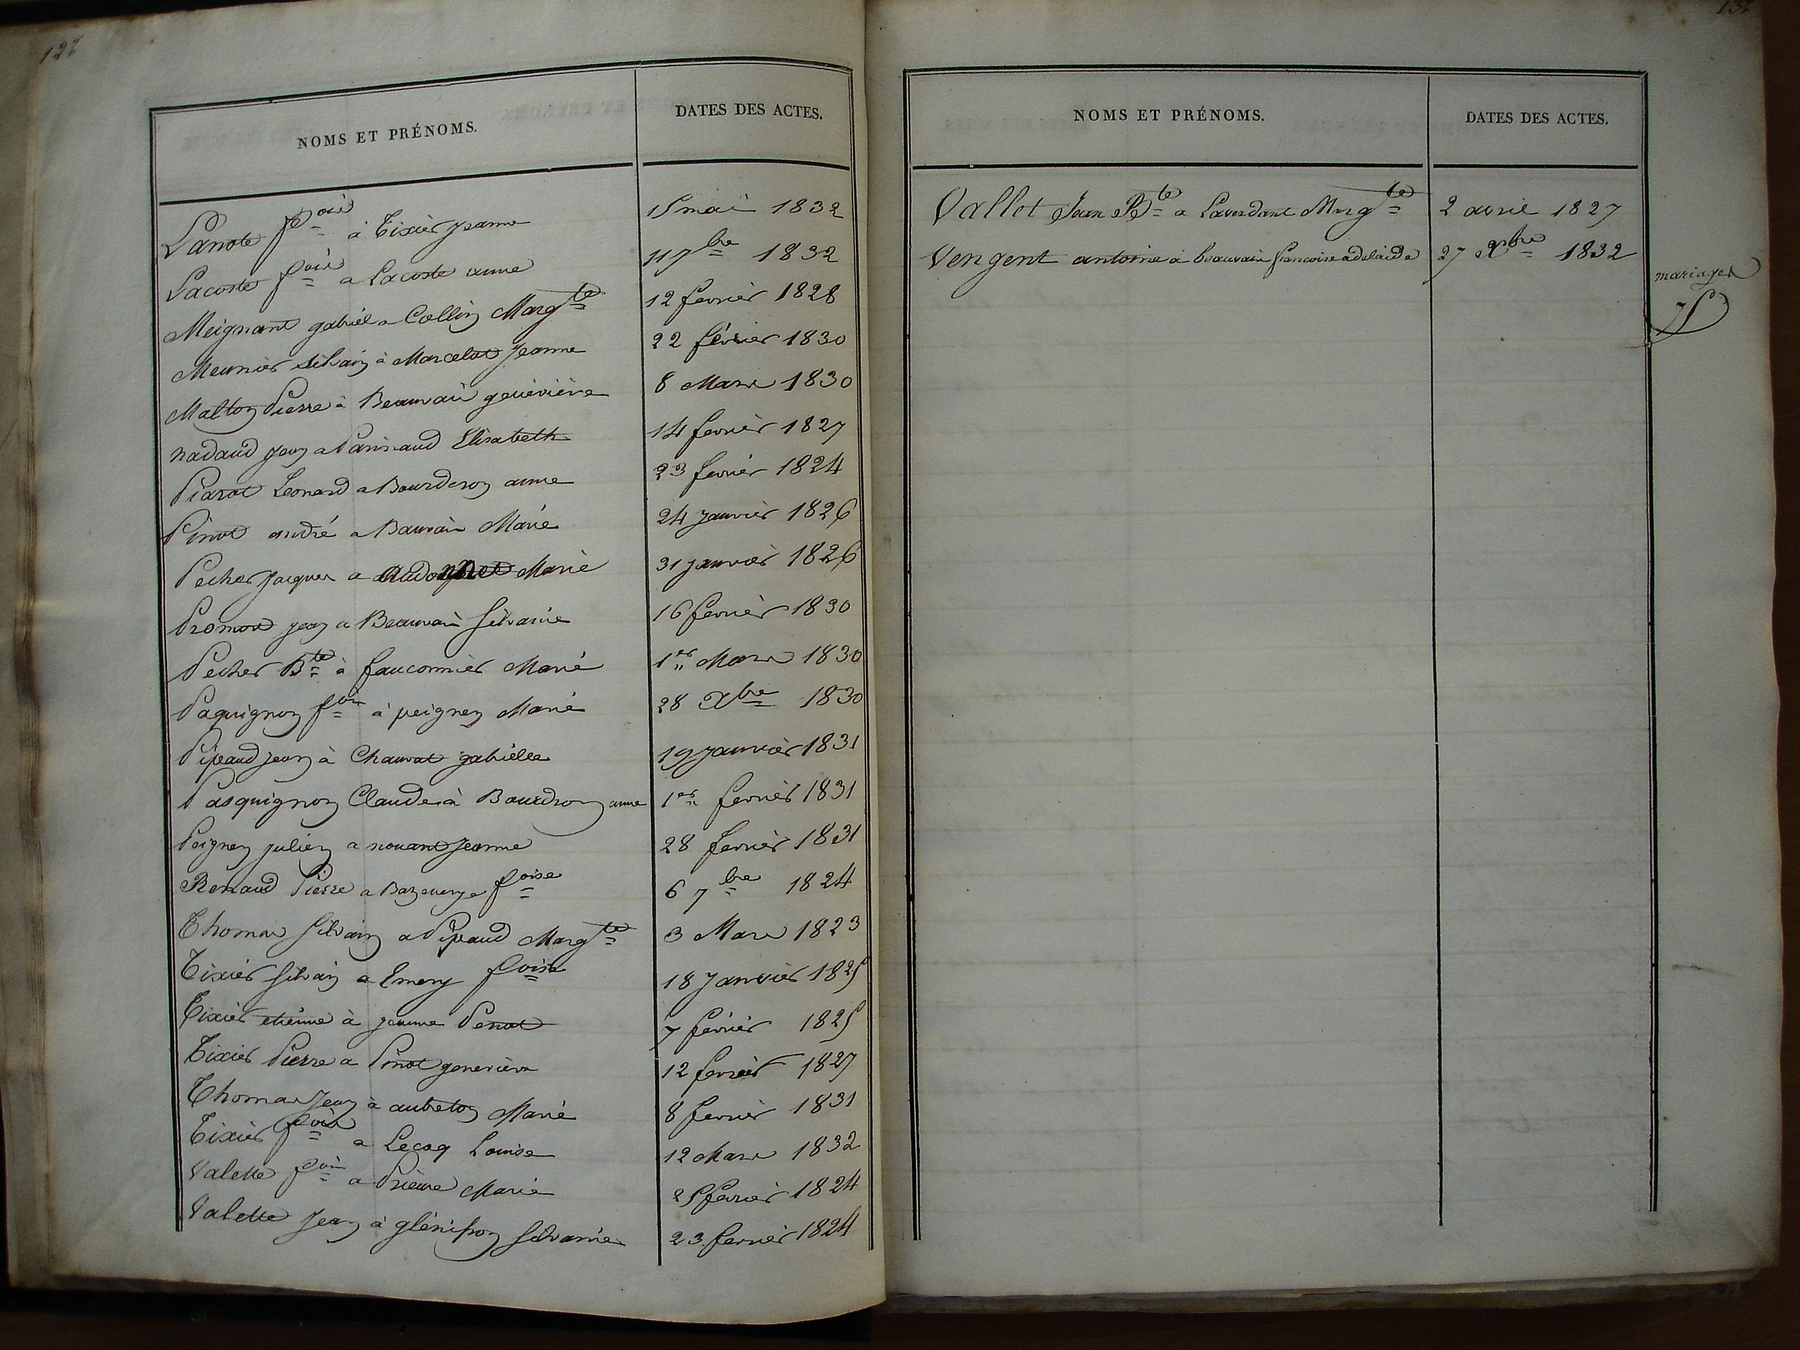 127
NOMS ET PRÉNOMS.
DATES DES ACTES.
Lanote fois à Tixier jeanne 15 mai 1832
Lacoste fois a Lacoste anne 11 7bre 1832
Meignant gabriel a Collin Margte 12 fevrièr 1828
Meunièr silvain à Marcelot jeanne 22 février 1830
Malton Pierre à Beauvais geneviève 8 Mars 1830
nadaud jean a Parinaud Elisabeth 14 fevrièr 1827
Piarot Leonard a Bourderon anne 23 fevrièr 1824
Pinot andré a Bauvais Marie 24 janvièr 1826
Pecher jacques a Marie 31 janvièr 1826
Promot jean a Beauvais silvaine 16 fevrièr 1830
Pecher Bte à fauconnièr Marie 1er Mars 1830
Paquignon fois à peignen Marie 28 Xbre 1830
Pipaud jean à Chauvat gabrielle 19 janvièr 1831
Pasquignon Claude à Bourdron anne 1er fevrièr 1831
Peignen julien a nouant jeanne 28 fevrièr 1831
Renaud Pierre a Bazenerye foise 6 7bre 1824
Thomas silvain a Pipaud Margte 3 Mars 1823
Tixièr silvain a Emery foise 18 janvièr 1825
Tixier etienne à jeanne Penot 7 février 1825
Tixier Pierre a Pinot geneviève 12 fevrièr 1827
Thomas jean à aubeton Marie 8 fevrièr 1831
Tixièr fois a Lecoq Louise 12 Mars 1832
Valette fois a Marie 25 fevrièr 1824
Valette jean à glénisson silvaine 23 fevrièr 1824
NOMS ET PRÉNOMS.
DATES DES ACTES.
Vallet Jean Bte a Laverdant Margte 2 avril 1827
Vengent antoine à beauvais francoise adelaide 27 Xbre 1832
mariages